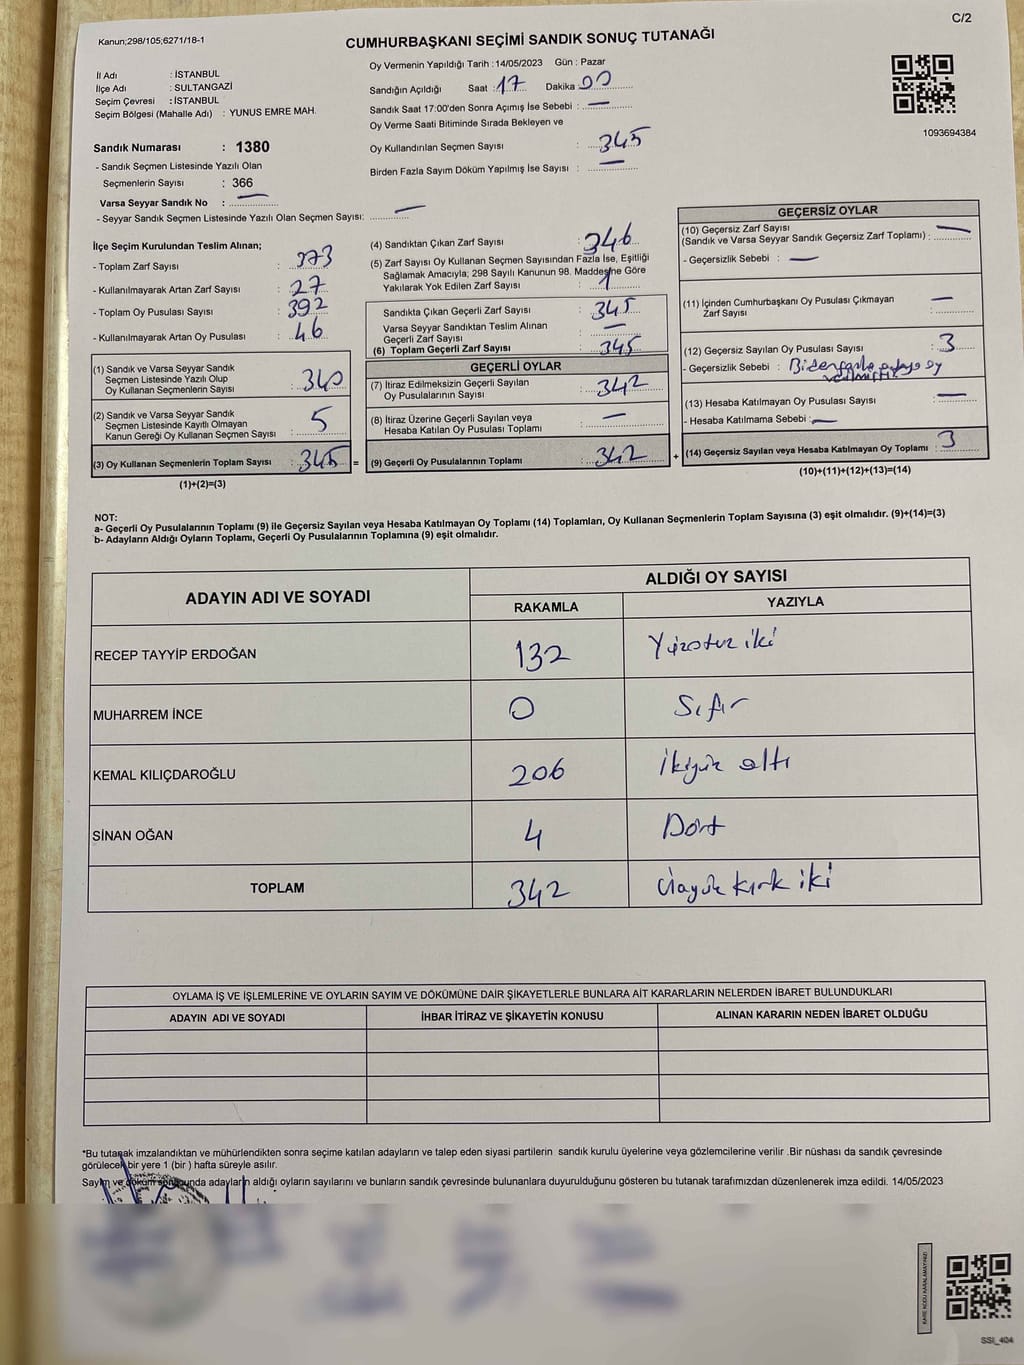 C/2
Kanun;298/105;6271/18-1
CUMHURBAŞKANI SEÇİMİ SANDIK SONUÇ TUTANAĞI
İl Adı : İSTANBUL
İlçe Adı : SULTANGAZİ
Seçim Çevresi : İSTANBUL
Seçim Bölgesi (Mahalle Adı) : YUNUS EMRE MAH.
Oy Vermenin Yapıldığı Tarih :14/05/2023 Gün : Pazar
Sandığın Açıldığı Saat : 17 Dakika 00
Sandık Saat 17:00'den Sonra Açımış İse Sebebi : —
Oy Verme Saati Bitiminde Sırada Bekleyen ve
Oy Kullandırılan Seçmen Sayısı : 345
Birden Fazla Sayım Döküm Yapılmış İse Sayısı : —
1093694384
Sandık Numarası : 1380
- Sandık Seçmen Listesinde Yazılı Olan
Seçmenlerin Sayısı : 366
Varsa Seyyar Sandık No : —
- Seyyar Sandık Seçmen Listesinde Yazılı Olan Seçmen Sayısı: —
İlçe Seçim Kurulundan Teslim Alınan;
- Toplam Zarf Sayısı : 373
- Kullanılmayarak Artan Zarf Sayısı : 27
- Toplam Oy Pusulası Sayısı : 392
- Kullanılmayarak Artan Oy Pusulası : 46
(1) Sandık ve Varsa Seyyar Sandık
Seçmen Listesinde Yazılı Olup
Oy Kullanan Seçmenlerin Sayısı : 340
(2) Sandık ve Varsa Seyyar Sandık
Seçmen Listesinde Kayıtlı Olmayan
Kanun Gereği Oy Kullanan Seçmen Sayısı : 5
(3) Oy Kullanan Seçmenlerin Toplam Sayısı : 345 =
(1)+(2)=(3)
(4) Sandıktan Çıkan Zarf Sayısı : 346
(5) Zarf Sayısı Oy Kullanan Seçmen Sayısından Fazla İse, Eşitliği
Sağlamak Amacıyla; 298 Sayılı Kanunun 98. Maddesine Göre
Yakılarak Yok Edilen Zarf Sayısı : 1
Sandıkta Çıkan Geçerli Zarf Sayısı : 345
Varsa Seyyar Sandıktan Teslim Alınan
Geçerli Zarf Sayısı : —
(6) Toplam Geçerli Zarf Sayısı : 345
GEÇERLİ OYLAR
(7) İtiraz Edilmeksizin Geçerli Sayılan
Oy Pusulalarının Sayısı : 342
(8) İtiraz Üzerine Geçerli Sayılan veya
Hesaba Katılan Oy Pusulası Toplamı : —
(9) Geçerli Oy Pusulalarının Toplamı : 342 +
GEÇERSİZ OYLAR
(10) Geçersiz Zarf Sayısı
(Sandık ve Varsa Seyyar Sandık Geçersiz Zarf Toplamı) : —
- Geçersizlik Sebebi : —
(11) İçinden Cumhurbaşkanı Oy Pusulası Çıkmayan
Zarf Sayısı : —
(12) Geçersiz Sayılan Oy Pusulası Sayısı : 3
- Geçersizlik Sebebi : Birden fazla adaya oy
verilmiştir
(13) Hesaba Katılmayan Oy Pusulası Sayısı : —
- Hesaba Katılmama Sebebi : —
(14) Geçersiz Sayılan veya Hesaba Katılmayan Oy Toplamı : 3
(10)+(11)+(12)+(13)=(14)
NOT:
a- Geçerli Oy Pusulalarının Toplamı (9) ile Geçersiz Sayılan veya Hesaba Katılmayan Oy Toplamı (14) Toplamları, Oy Kullanan Seçmenlerin Toplam Sayısına (3) eşit olmalıdır. (9)+(14)=(3)
b- Adayların Aldığı Oyların Toplamı, Geçerli Oy Pusulalarının Toplamına (9) eşit olmalıdır.
ADAYIN ADI VE SOYADI ALDIĞI OY SAYISI
RAKAMLA YAZIYLA
RECEP TAYYİP ERDOĞAN 132 Yüzotuz iki
MUHARREM İNCE 0 Sıfır
KEMAL KILIÇDAROĞLU 206 İkiyüz altı
SİNAN OĞAN 4 Dört
TOPLAM 342 Üçyüz kırk iki
OYLAMA İŞ VE İŞLEMLERİNE VE OYLARIN SAYIM VE DÖKÜMÜNE DAİR ŞİKAYETLERLE BUNLARA AİT KARARLARIN NELERDEN İBARET BULUNDUKLARI
ADAYIN ADI VE SOYADI İHBAR İTİRAZ VE ŞİKAYETİN KONUSU ALINAN KARARIN NEDEN İBARET OLDUĞU
*Bu tutanak imzalandıktan ve mühürlendikten sonra seçime katılan adayların ve talep eden siyasi partilerin sandık kurulu üyelerine veya gözlemcilerine verilir .Bir nüshası da sandık çevresinde
görülecek bir yere 1 (bir ) hafta süreyle asılır.
Sayım ve döküm sonucunda adayların aldığı oyların sayılarını ve bunların sandık çevresinde bulunanlara duyurulduğunu gösteren bu tutanak tarafımızdan düzenlenerek imza edildi. 14/05/2023
KARE KODU KARALAMAYINIZ!
SSI_404